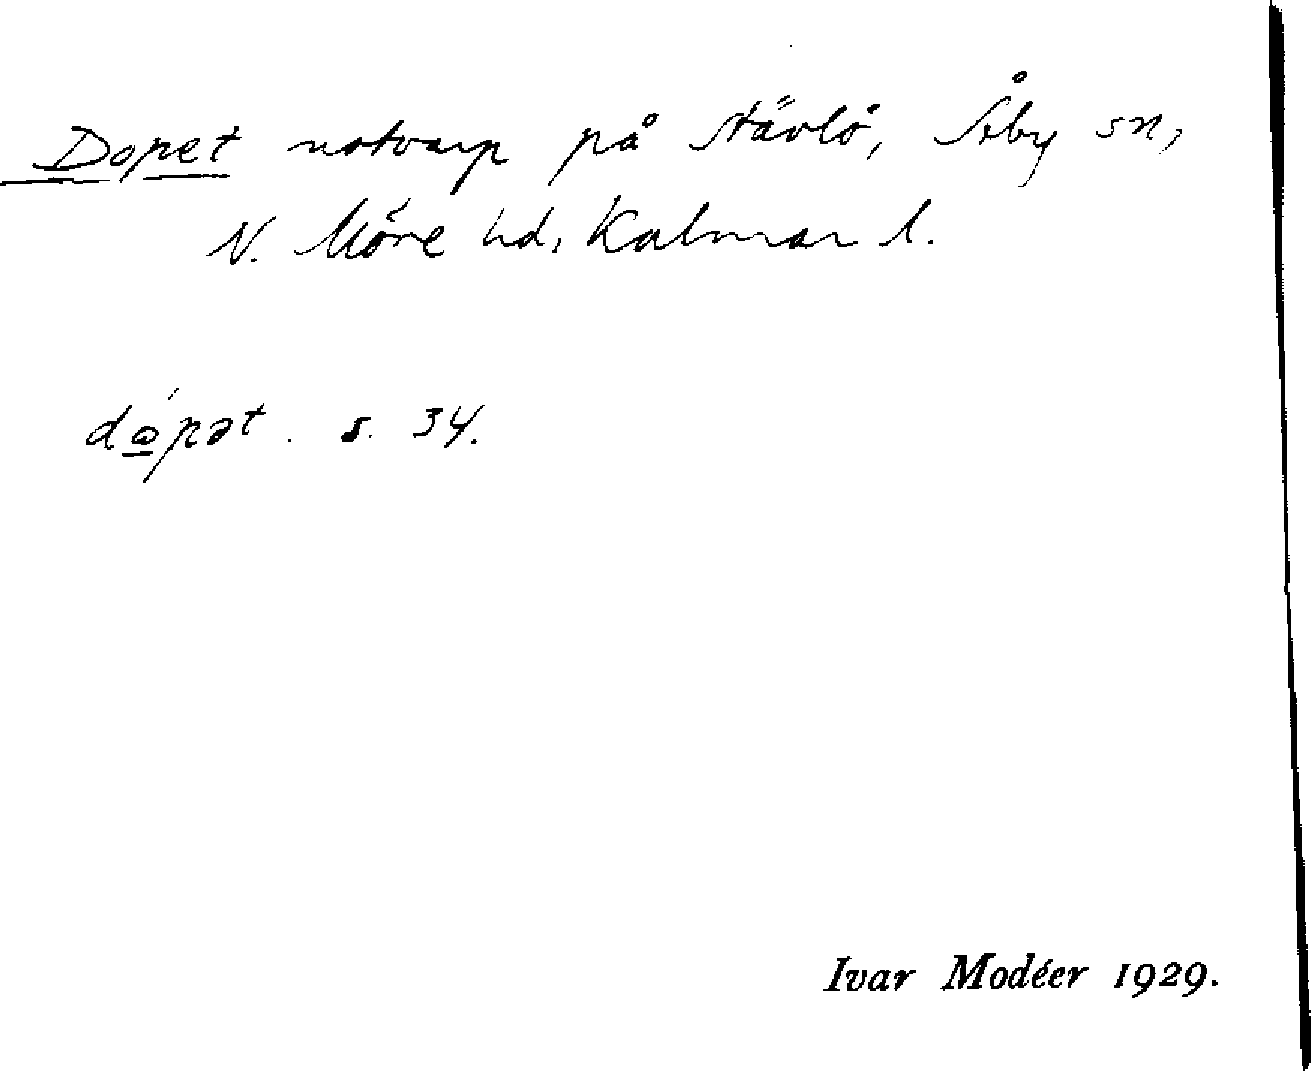 Dopet notvarp på Stävlö, Åby sn,
N. Möre hd, Kalmar l.
dópət. s. 34.
Ivar Modéer 1929.